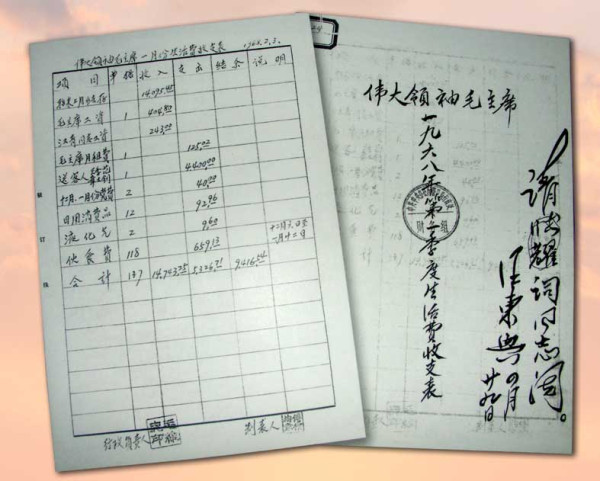 伟大领袖毛主席一月份生活费收支表 1968.2.3.
项目 单据 收入 支出 结余 说明
14,095.40
毛主席工资 1 404.80
江青同志工资 243.00
毛主席月租费 1 125.02
1 4400.00
十二月、一月份党费 2 40.00
日用消费品 12 92.96
液化气 2 9.60
伙食费 118 659.13 十二月六日至一月十二日
合计 137 14,743.25 5,326.71 9,416.54
行政负责人
制表人
伟大领袖毛主席
一九六八年第一季度生活费收支表
请耀词同志阅。
汪东兴
四月廿九日